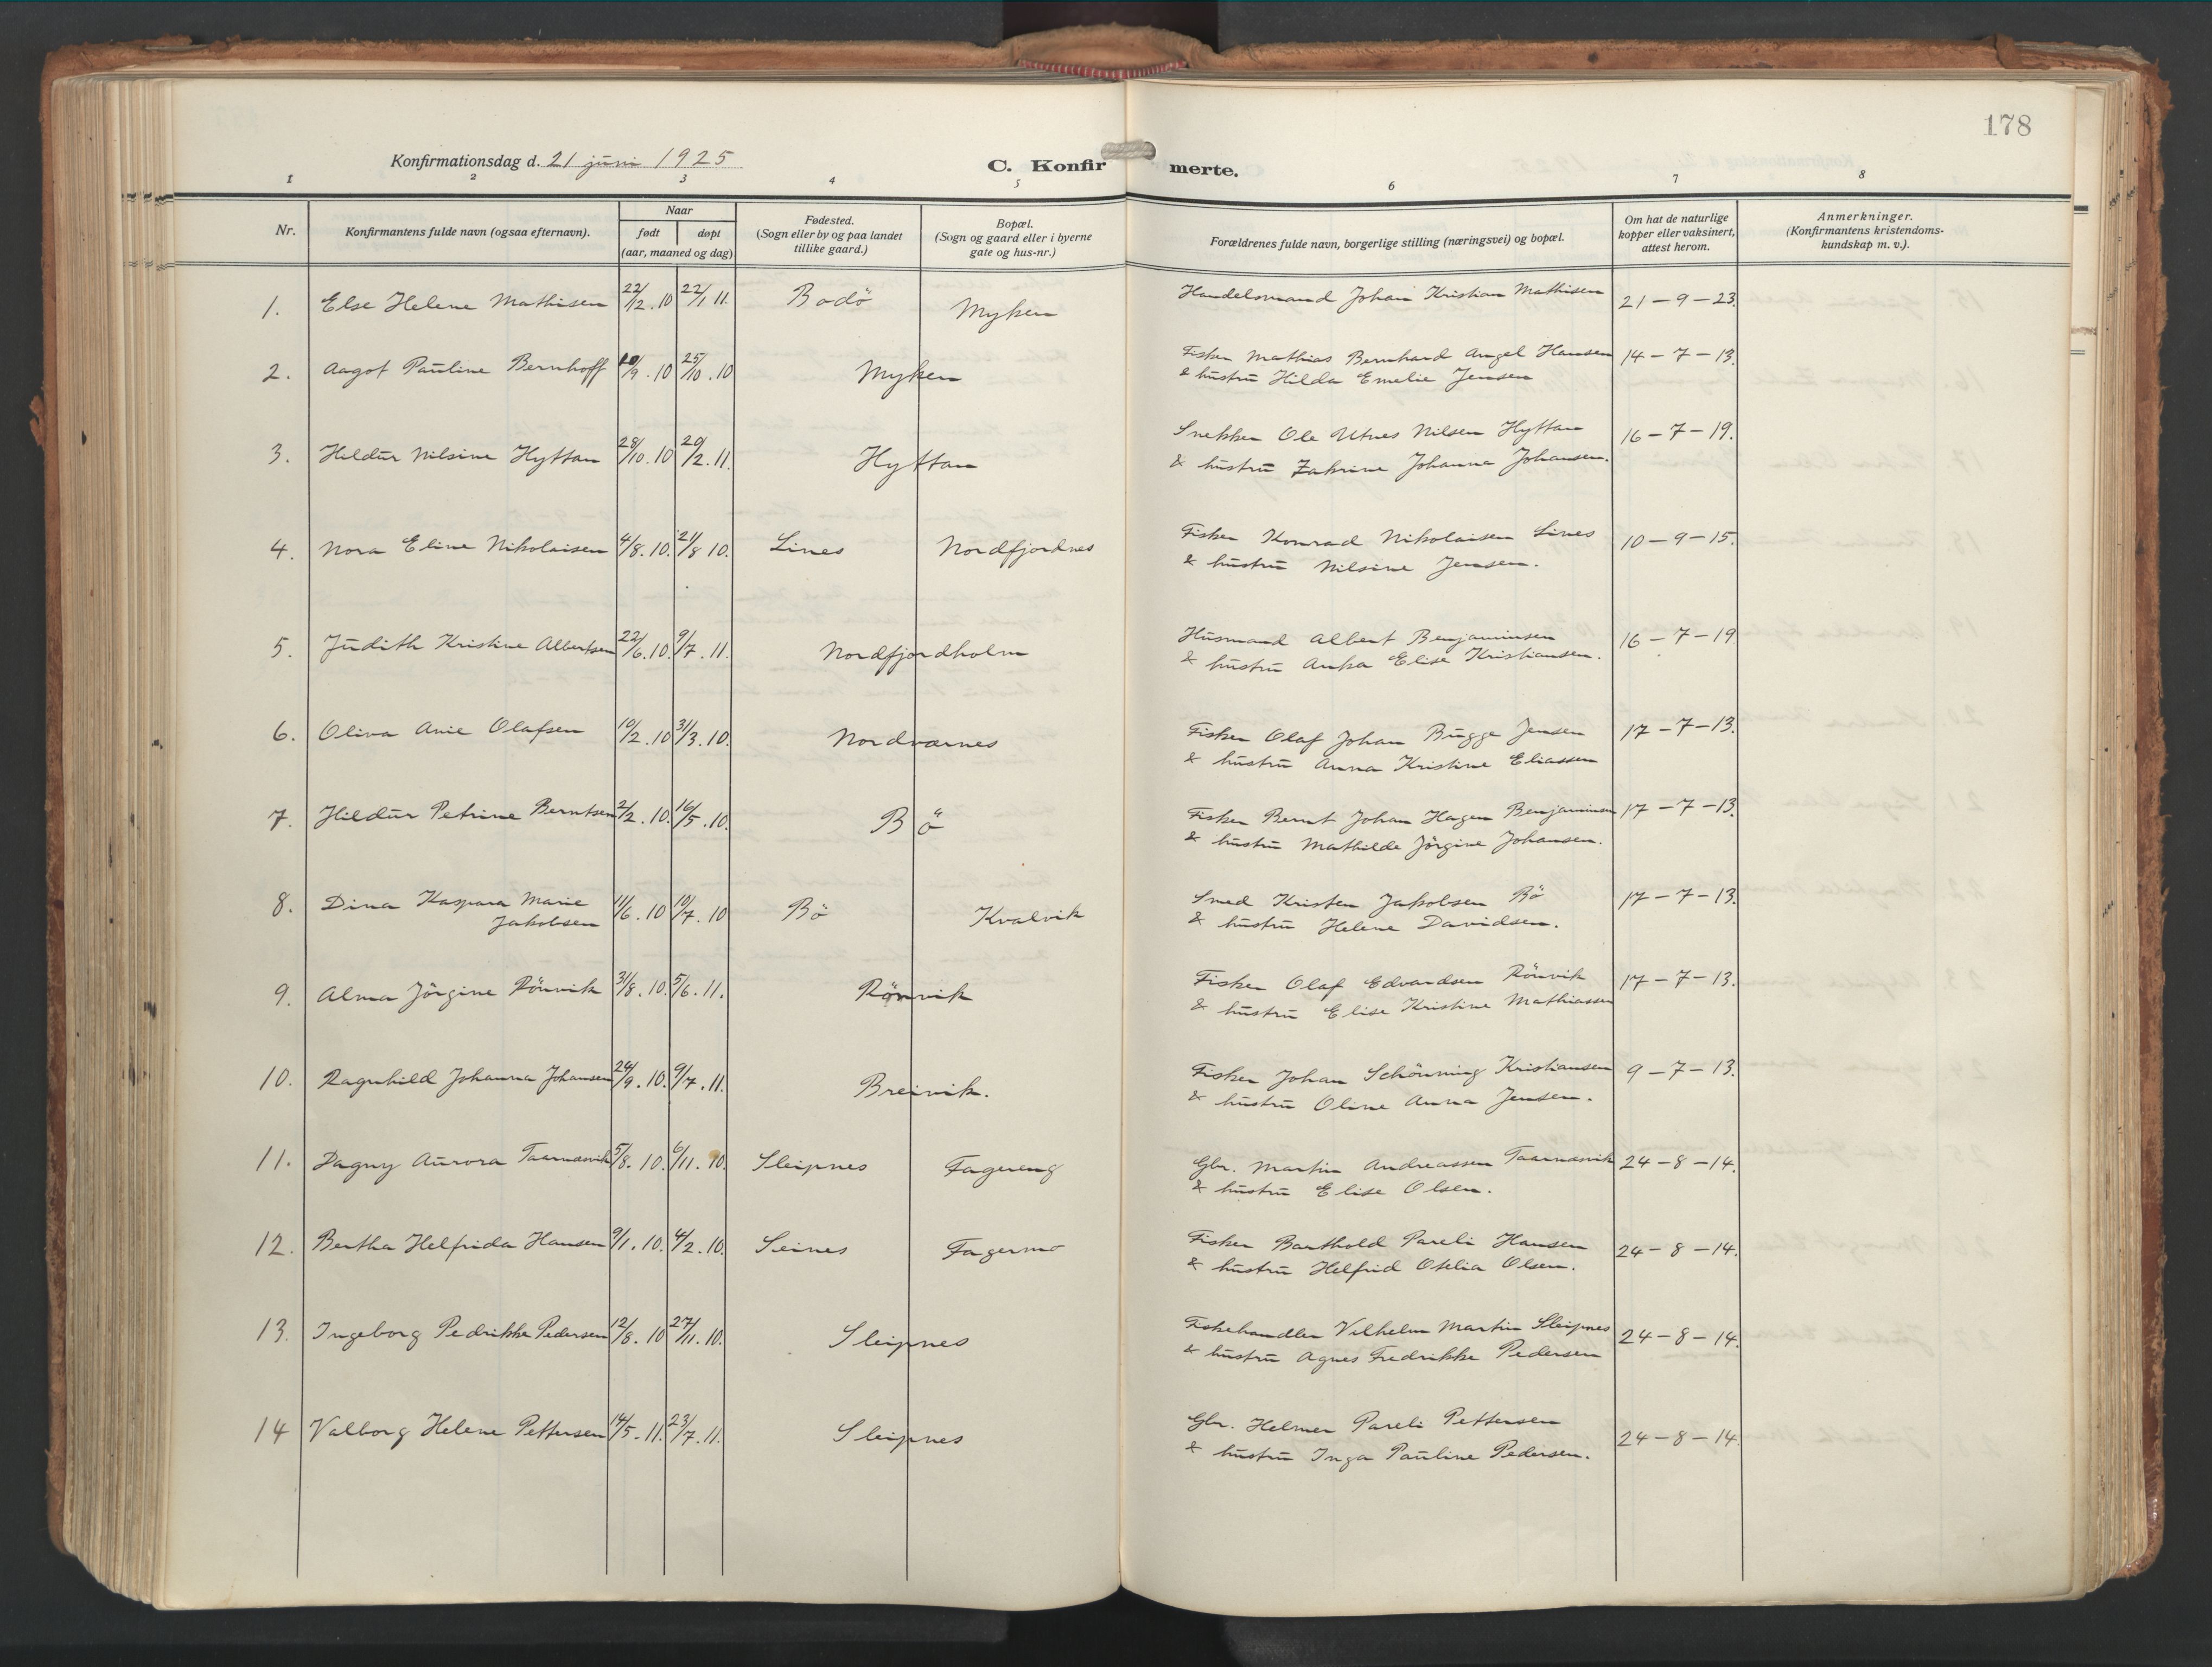 178
Konfirmationsdag d. 21 juni 1925
C. Konfirmerte.
1 2 3 4 5 6 7 8
Nr.
Konfirmantens fulde navn (ogsaa efternavn).
Naar
født døpt
(aar, maaned og dag)
Fødested.
(Sogn eller by og paa landet
tillike gaard.)
Bopæl.
(Sogn og gaard eller i byerne
gate og hus-nr.)
Forældrenes fulde navn, borgerlige stilling (næringsvei) og bopæl.
Om hat de naturlige
kopper eller vaksinert,
attest herom.
Anmerkninger.
(Konfirmantens kristendoms-
kundskap m. v.).
1. Else Helene Mathisen 22/12.10 22/1 11. Bodö Myken Handelsmand Johan Kristian Mathisen 21-9-23.
2. Aagot Pauline Bernhoff /9.10 25/10.10 Myken Fisker Mathias Bernhard Angel Hansen 14-7-13.
& hustru Hilda Emelie Jensen
3. Hildur Nilsine Hyttan 28/10.10 20/2.11. Hyttan Snekker Ole Utnes Nilsen Hyttan 16-7-19.
& hustru Zakrine Johanna Johansen.
4. Nora Eline Nikolaisen 4/8.10. 21/8 10. Lines Nordfjordnes Fisker Konrad Nikolaisen Lines 10-9-15.
& hustru Nilsine Jensen.
5. Judith Kristine Albertsen 22/6.10. 9/7.11. Nordfjordholm Husmand Albert Benjaminsen 16-7-19
& hustru Anka Elise Kristiansen.
6. Oliva Anie Olafsen 10/2.10 31/3.10. Nordværnes Fisker Olaf Johan Bugge Jensen 17-7-13.
& hustru Anna Kristine Eliassen
7. Hildur Petrine Berntsen 2/2.10. 16/5.10. Bö Fisker Bernt Johan Hagen Benjaminsen 17-7-13.
& hustru Mathilde Jörgine Johansen.
8. Dina Kaspara Marie 11/6.10 10/7.10 Bö Kvalvik Smed Kristen Jakobsen Bö 17-7-13.
Jakobsen & hustru Helene Davidsen.
9. Alma Jörgine Rönvik 31/8.10. 5/6.11. Rönvik Fisker Olaf Edvardsen Rönvik 17-7-13.
& hustru Elise Kristine Mathiassen
10. Ragnhild Johanna Johansen 24/9.10. 9/7.11. Breivik. Fisker Johan Schönning Kristiansen 9-7-13.
& hustru Oline Anna Jensen.
11. Dagny Aurora Taarnæsvik 5/8.10. 6/11.10. Sleipnes Fagereng Gbr. Martin Andreassen Taarnæsvik 24-8-14.
& hustru Elise Olsen.
12. Bertha Helfrida Hansen 9/1.10. 4/2.10. Seines Fagermo Fisker Barthold Pareli Hansen 24-8-14.
& hustru Helfrid Otelia Olsen.
13. Ingeborg Pedrikke Pedersen 12/8.10 27/11.10. Sleipnes Fiskehandler Vilhelm Martin Sleipnes 24-8-14.
& hustru Agnes Fredrikke Pedersen
14 Valborg Helene Pettersen 14/5.11. 23/7.11. Sleipnes Gbr. Helmer Pareli Pettersen 24-8-14.
& hustru Inga Pauline Pedersen.